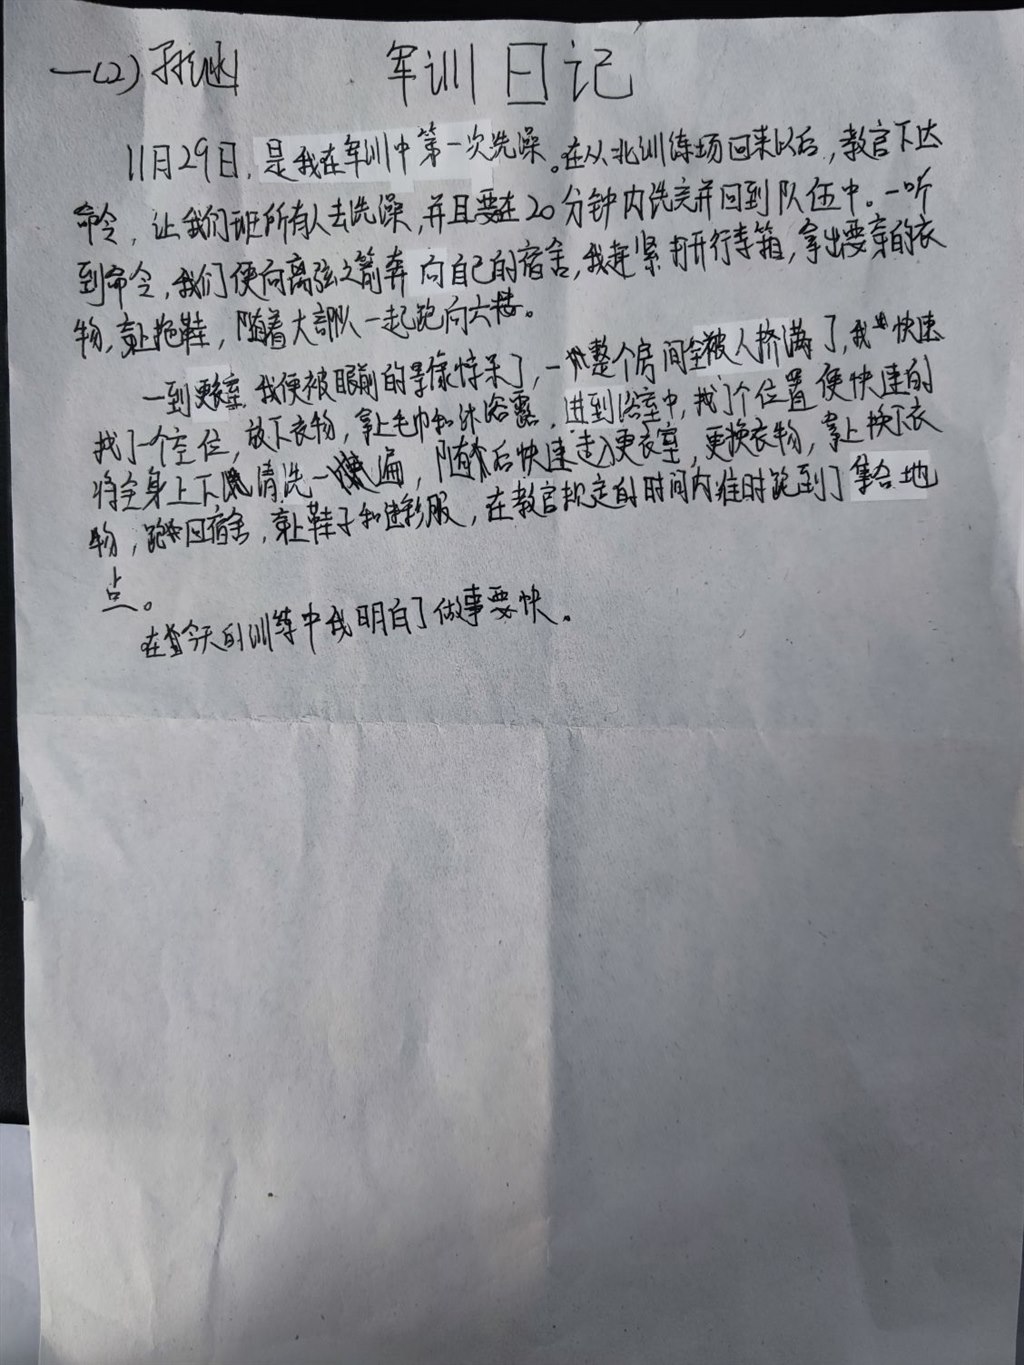 一(2) 军训日记
11月29日,是我在军训中第一次洗澡。在从北训练场回来以后,教官下达
命令,让我们班所有人去洗澡,并且要在20分钟内洗完并回到队伍中。一听
到命令,我们便向离弦之箭奔向自己的宿舍,我赶紧打开行李箱,拿出要穿的衣
物,穿上拖鞋,随着大部队一起跑向六楼。
一到更衣室,我便被眼前的景像惊呆了,一整个房间全被人挤满了,我快速
找了一个空位,放下衣物,拿上毛巾和沐浴露,进到浴室中,找了个位置便快速的
将全身上下清洗一遍,随后快速走入更衣室,更换衣物,拿上换下衣
物,跑回宿舍,穿上鞋子和迷彩服,在教官规定的时间内准时跑到了集合地
点。
在今天的训练中我明白了做事要快。